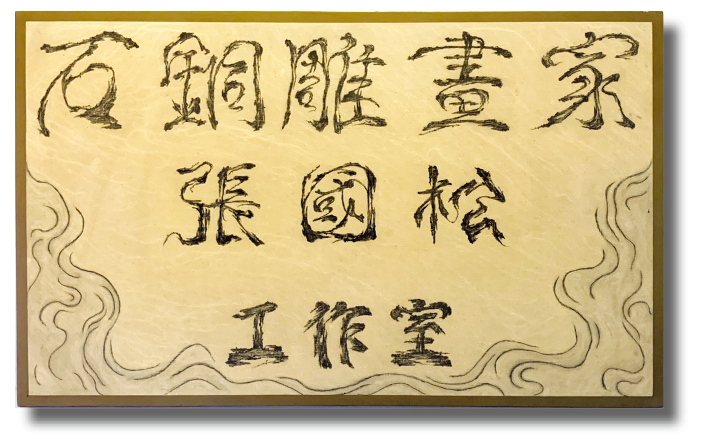 石銅雕畫家
張國松
工作室